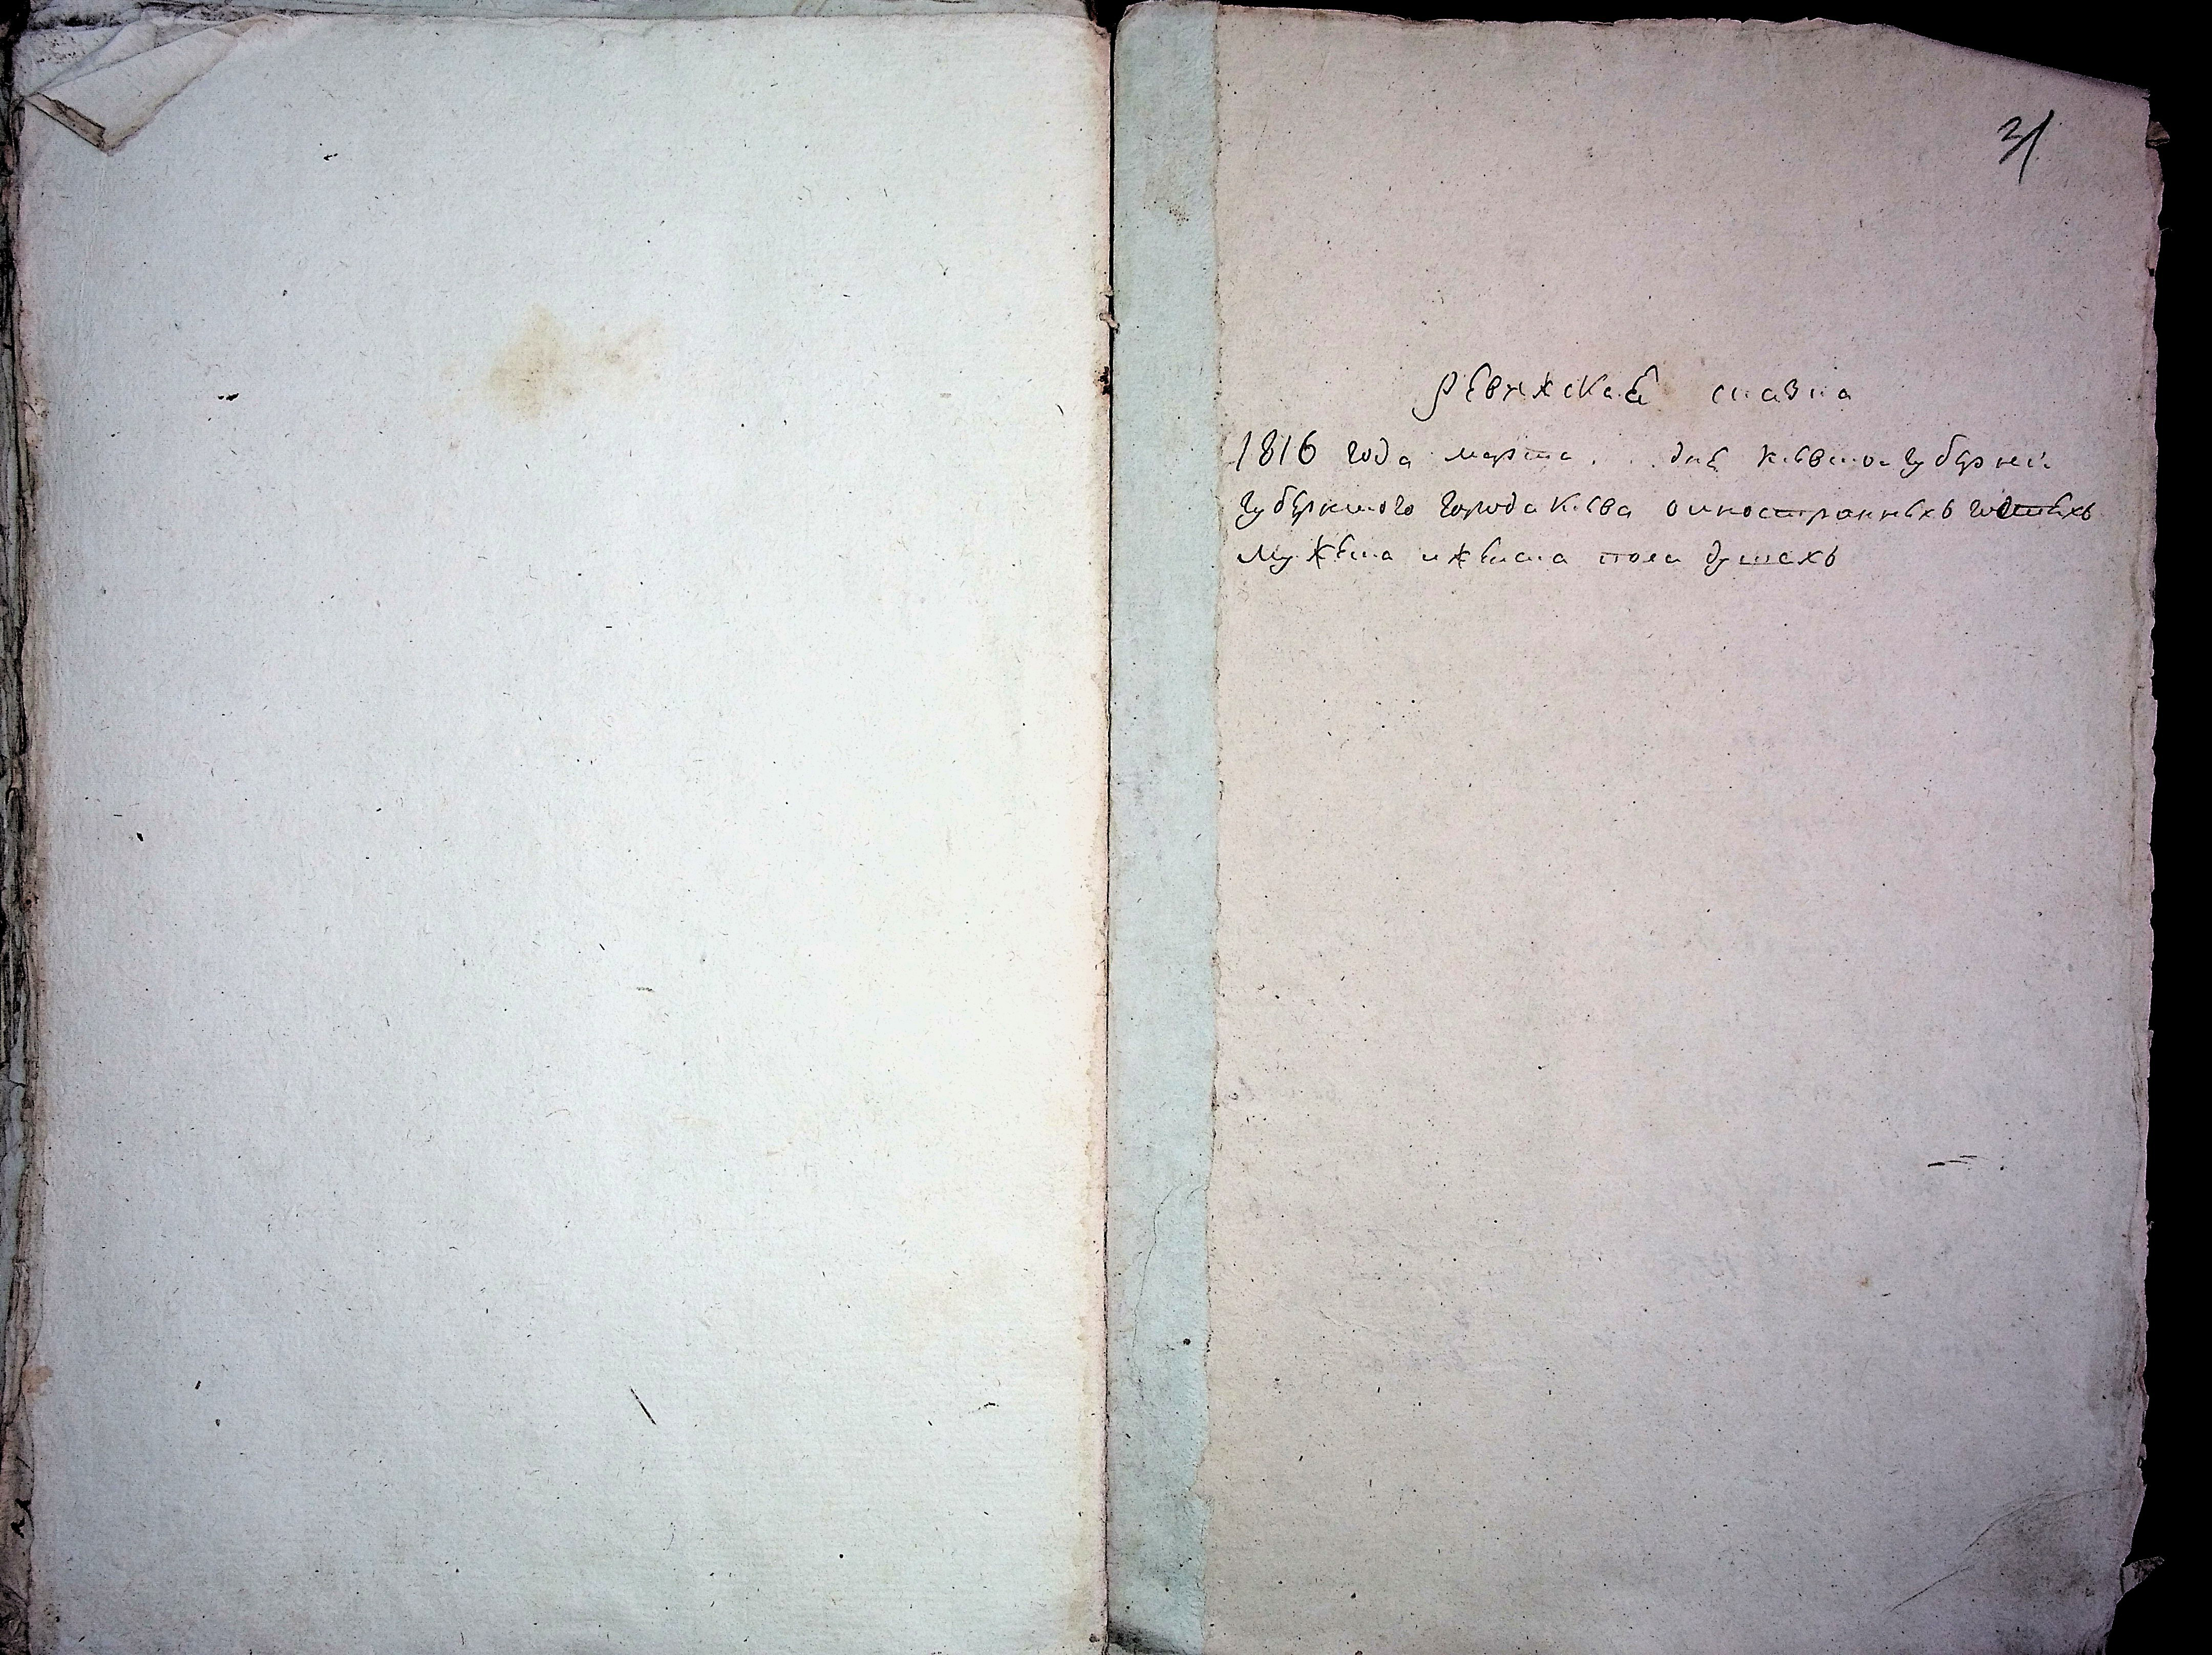 31
Ревижская сказка
1816 года марта . . . дня Киевской губернеи
губернского города Киева о иностранныхъ гостяхъ
мужеска и женска пола душахъ